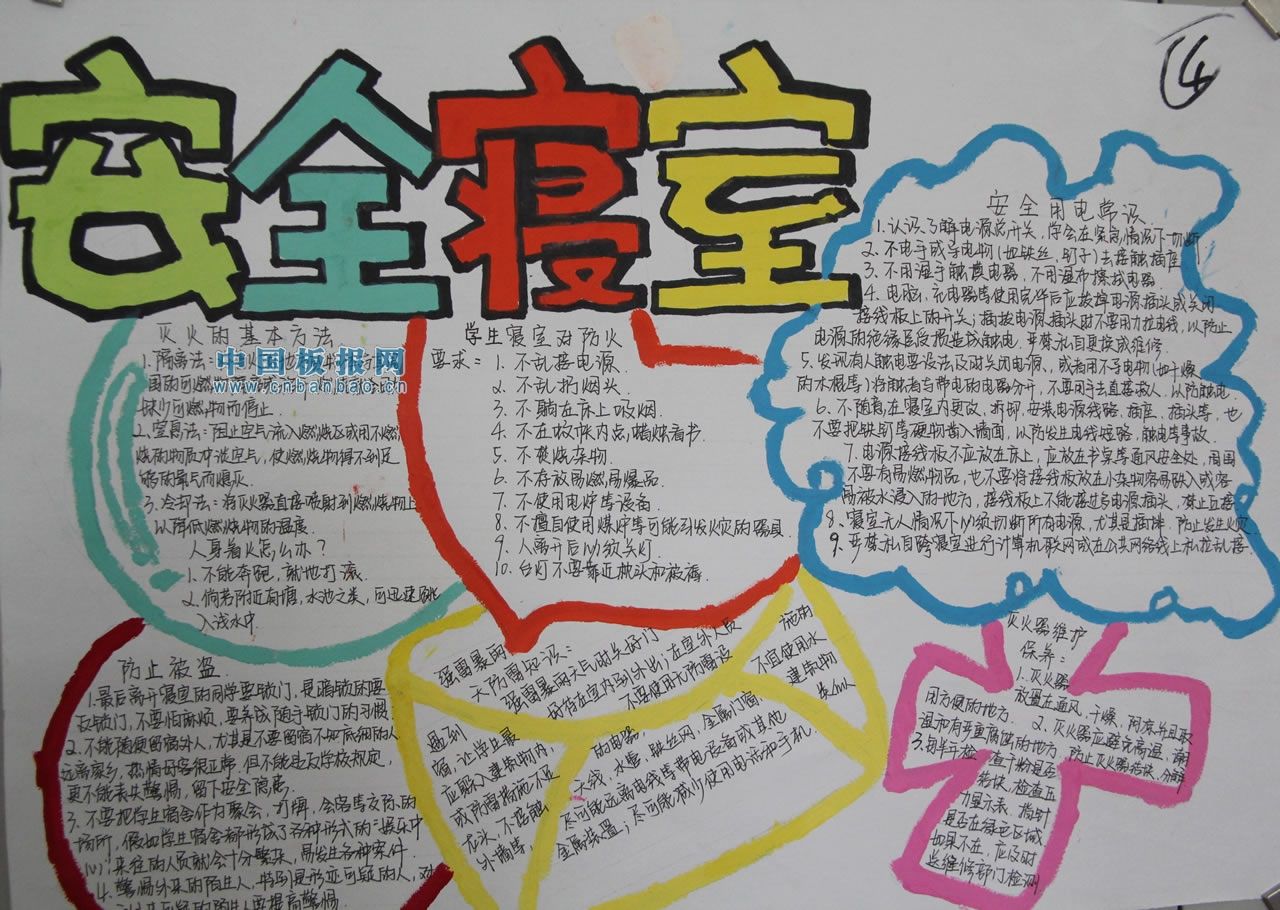 安全寝室
④
灭火的基本方法
1.隔离法：
中国板报网
www.cnbanbao.cn
缺少可燃物而停止.
2.窒息法：阻止空气流入燃烧区或用不燃
烧的物质冲淡空气，使燃烧物得不到足
够的氧气而熄灭.
3.冷却法：将灭火器直接喷射到燃烧物上
以降低燃烧物的温度.
人身着火怎么办？
1.不能奔跑，就地打滚.
2.倘若附近有塘，水池之类，可迅速跳
入浅水中
学生寝室对防火
要求：1.不乱接电源.
2.不乱扔烟头.
3.不躺在床上吸烟.
4.不在蚊帐内点蜡烛看书.
5.不焚烧杂物.
6.不存放易燃易爆品
7.不使用电炉等设备
8.不擅自使用煤炉等可能引发火灾的器具
9.人离开后必须关灯.
10.台灯不要靠近枕头和被褥.
安全用电常识
1.认识了解电源总开关，学会在紧急情况下切断
2.不用手或导电物(如铁丝，钉子)去接触插座
3.不用湿手触摸电器，不用湿布擦拭电器
4.电脑、充电器等使用完毕后应拔掉电源插头或关闭
接线板上的开关；插拔电源插头时不要用力拉电线，以防止
电源的绝缘层受损造成触电.
5.发现有人触电要设法及时关闭电源，或者用不导电物(如干燥
的木棍等)将触电者与带电的电器分开，不要用手去直接救人，以防触电
6.不随意在寝室内更改，拆卸，安装电源线路，插座，插头等，也
不要把铁钉等硬物凿入墙面，以防发生电线短路，触电等事故.
7.电源接线板不应放在床上，应放在书桌等通风安全处，周围
不要有易燃物品，也不要将接线板放在小杂物容易跌入或容
易被水浸入的地方，接线板上不能接过多电源插头，禁止互接
8.寝室无人情况下必须切断所有电源，尤其是插排，防止发生火灾
9.严禁私自跨寝室进行计算机联网或在公共网络线上私拉乱接
防止被盗
1.最后离开寝室的同学要锁门，是暗锁的要
反锁门，不要怕麻烦，要养成随手锁门的习惯.
2.不能随便留宿外人，尤其是不要留宿不知底细的人
远离家乡，热情好客很正常，但不能违反学校规定，
更不能丧失警惕，留下安全隐患.
3.不要把学生宿舍作为聚会，打牌，会客等交际的
场所，假如学生宿舍稀形成了各种形式的"娱乐中
心"，来往的人员就会十分繁杂，易发生各种案件
4.警惕外来的陌生人，特别是形迹可疑的人，对
强雷暴雨
天防雷知识：
强雷暴雨天气时关好门
好待在室内别外出；在室外人员
不要使用无防雷设
施的
不宜使用水
建筑物
遇到
窗，让学生最
应躲入建筑物内，
龙头，不要触
外墙等
的电器
天线，水管，铁丝网，金属门窗，
尽可能远离电线等带电设备或其他
金属装置；尽可能减少使用电话和手机
灭火器维护
保养：
1.灭火器
放置在通风、干燥、阴凉并且取
用方便的地方.
2.灭火器应避免高温、潮
湿和有严重腐蚀的地方，防止灭火器结块、分解
3.每半年检查干粉是否
结块，检查压
力显示表，指针
是否在绿色区域
如果不在，应及时
送维修部门检测